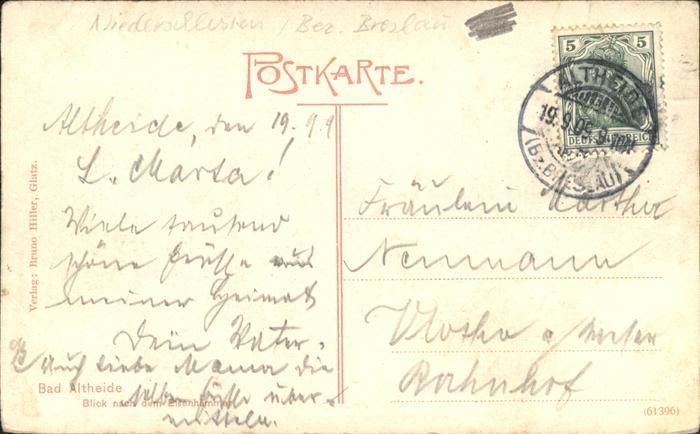 Niederschlesien / Bez. Breslau
POSTKARTE.
5 5
DEUTSCHES REICH
ALTHEIDE
19.9.09. 9-10V.
(Bz. BRESLAU)
Altheide, den 19.9.9
L. Marta!
Viele tausend
schöne Grüsse aus
meiner Heimat
Dein Vater.
Auch liebe Mama die
selben Grüße über-
mitteln.
Fräulein Marthe
Neumann
Vlotho a/ Weser
Bahnhof
Verlag: Bruno Hiller, Glatz.
Bad Altheide
Blick nach dem Eisenhammer
(61396)